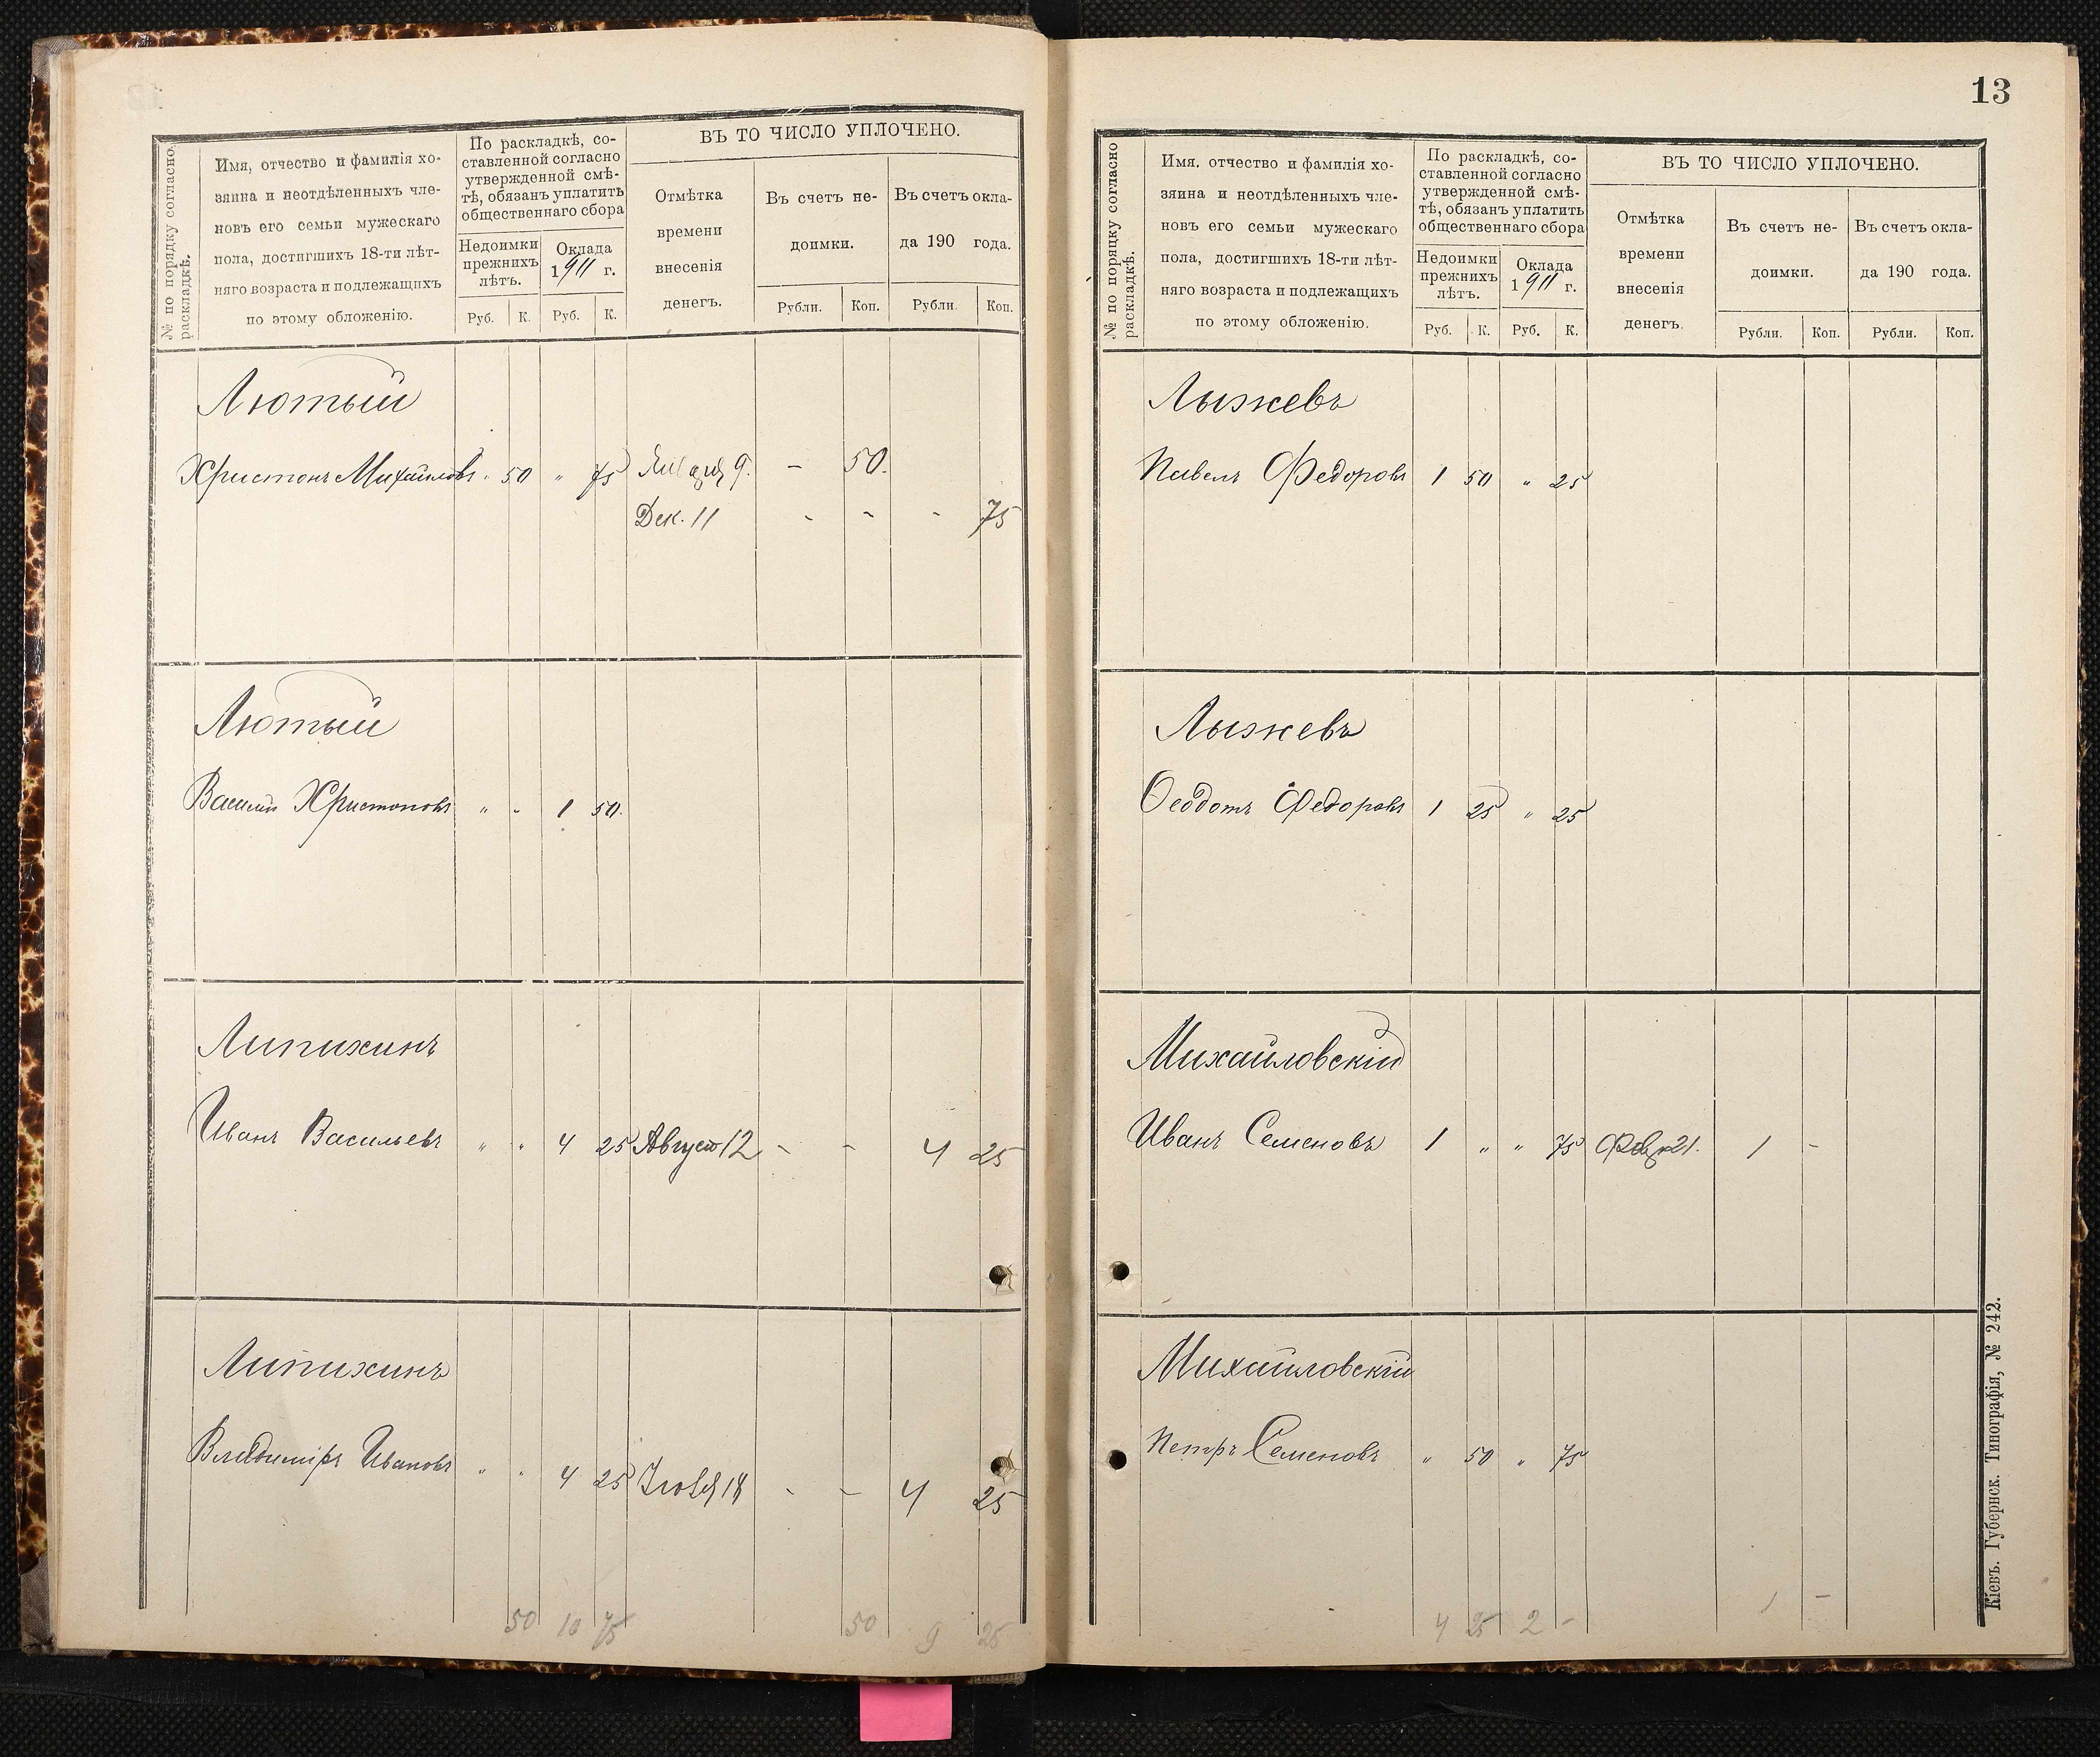 № по порядку согласно
раскладкѣ.
Имя, отчество и фамилія хо-
зяина и неотдѣленныхъ чле-
новъ его семьи мужескаго
пола, достигшихъ 18-ти лѣт-
няго возраста и подлежащихъ
по этому обложенію.
По раскладкѣ, со-
ставленной согласно
утвержденной смѣ-
тѣ, обязанъ уплатить
общественнаго сбора
Недоимки
прежнихъ
лѣтъ.
Оклада
1911 г.
Руб. К. Руб. К.
ВЪ ТО ЧИСЛО УПЛОЧЕНО.
Отмѣтка
времени
внесенія
денегъ.
Въ счетъ не-
доимки.
Въ счетъ окла-
да 190 года.
Рубли. Коп. Рубли. Коп.
Лютый
Христонъ Михайловъ " 50 " 75 9. - 50.
Дек. 11 - - - 75
Лютый
Василій Христоновъ " - 1 50.
Липихинъ
Иванъ Васильевъ " " 4 25 Август 12 - - 4 25
Липихинъ
Владиміръ Ивановъ " " 4 25 18 - - 4 25
50 10 75 50 9 25
13
№ по порядку согласно
раскладкѣ.
Имя. отчество и фамилія хо-
зяина и неотдѣленныхъ чле-
новъ его семьи мужескаго
пола, достигшихъ 18-ти лѣт-
няго возраста и подлежащихъ
по этому обложенію.
По раскладкѣ, со-
ставленной согласно
утвержденной смѣ-
тѣ, обязанъ уплатить
общественнаго сбора
Недоимки
прежнихъ
лѣтъ.
Оклада
1911 г.
Руб. К. Руб. К.
ВЪ ТО ЧИСЛО УПЛОЧЕНО.
Отмѣтка
времени
внесенія
денегъ.
Въ счетъ не-
доимки.
Въ счетъ окла-
да 190 года.
Рубли. Коп. Рубли. Коп.
Лыжевъ
Павелъ Федоровъ 1 50 " 25
Лыжевъ
Ѳеодотъ Федоровъ 1 25 " 25
Михайловскій
Иванъ Семеновъ 1 " " 75 21. 1 -
Михайловскій
Петръ Семеновъ " 50 " 75
4 25 2 - 1 -
Кіевъ. Губернск. Типографія, № 242.